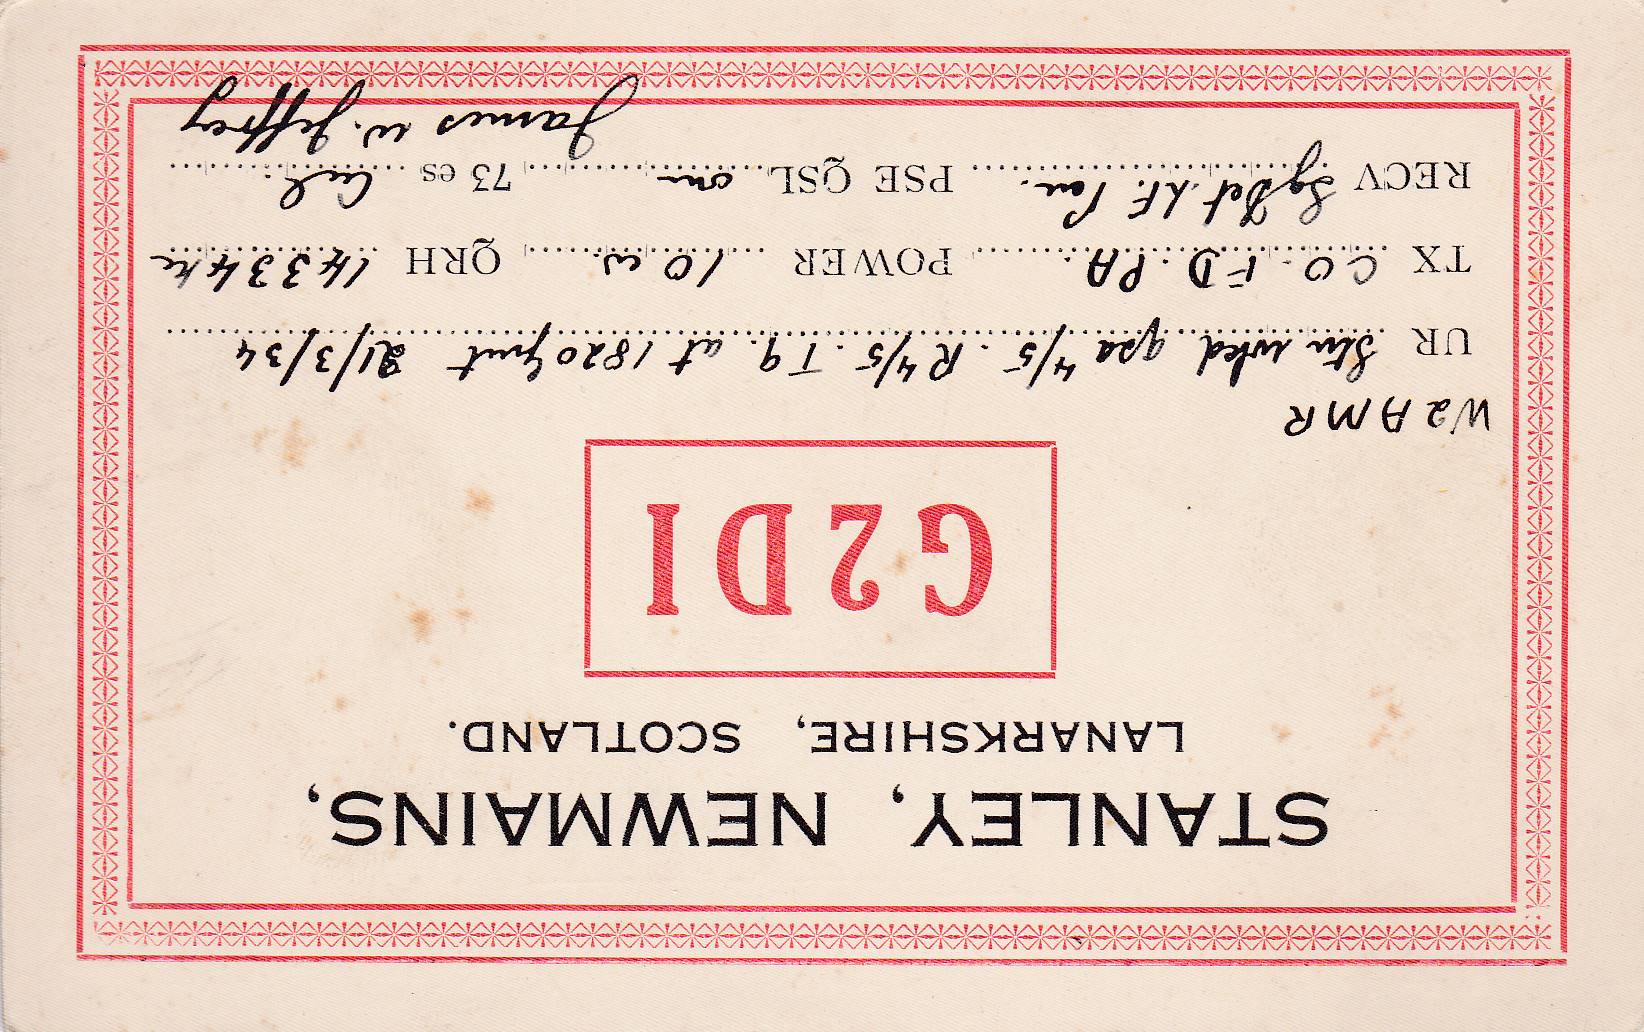 STANLEY, NEWMAINS,
LANARKSHIRE, SCOTLAND.
G2DI
W2AMR
UR Stn wked qsa 4/5. R 4/5. T9. at 1820 gmt 21/3/34
TX CO. FD. PA. POWER 10 w. QRH 14334 kc
RECV Sg Det. LF. Pen. PSE QSL 73 es Cul.
James W. Jeffrey